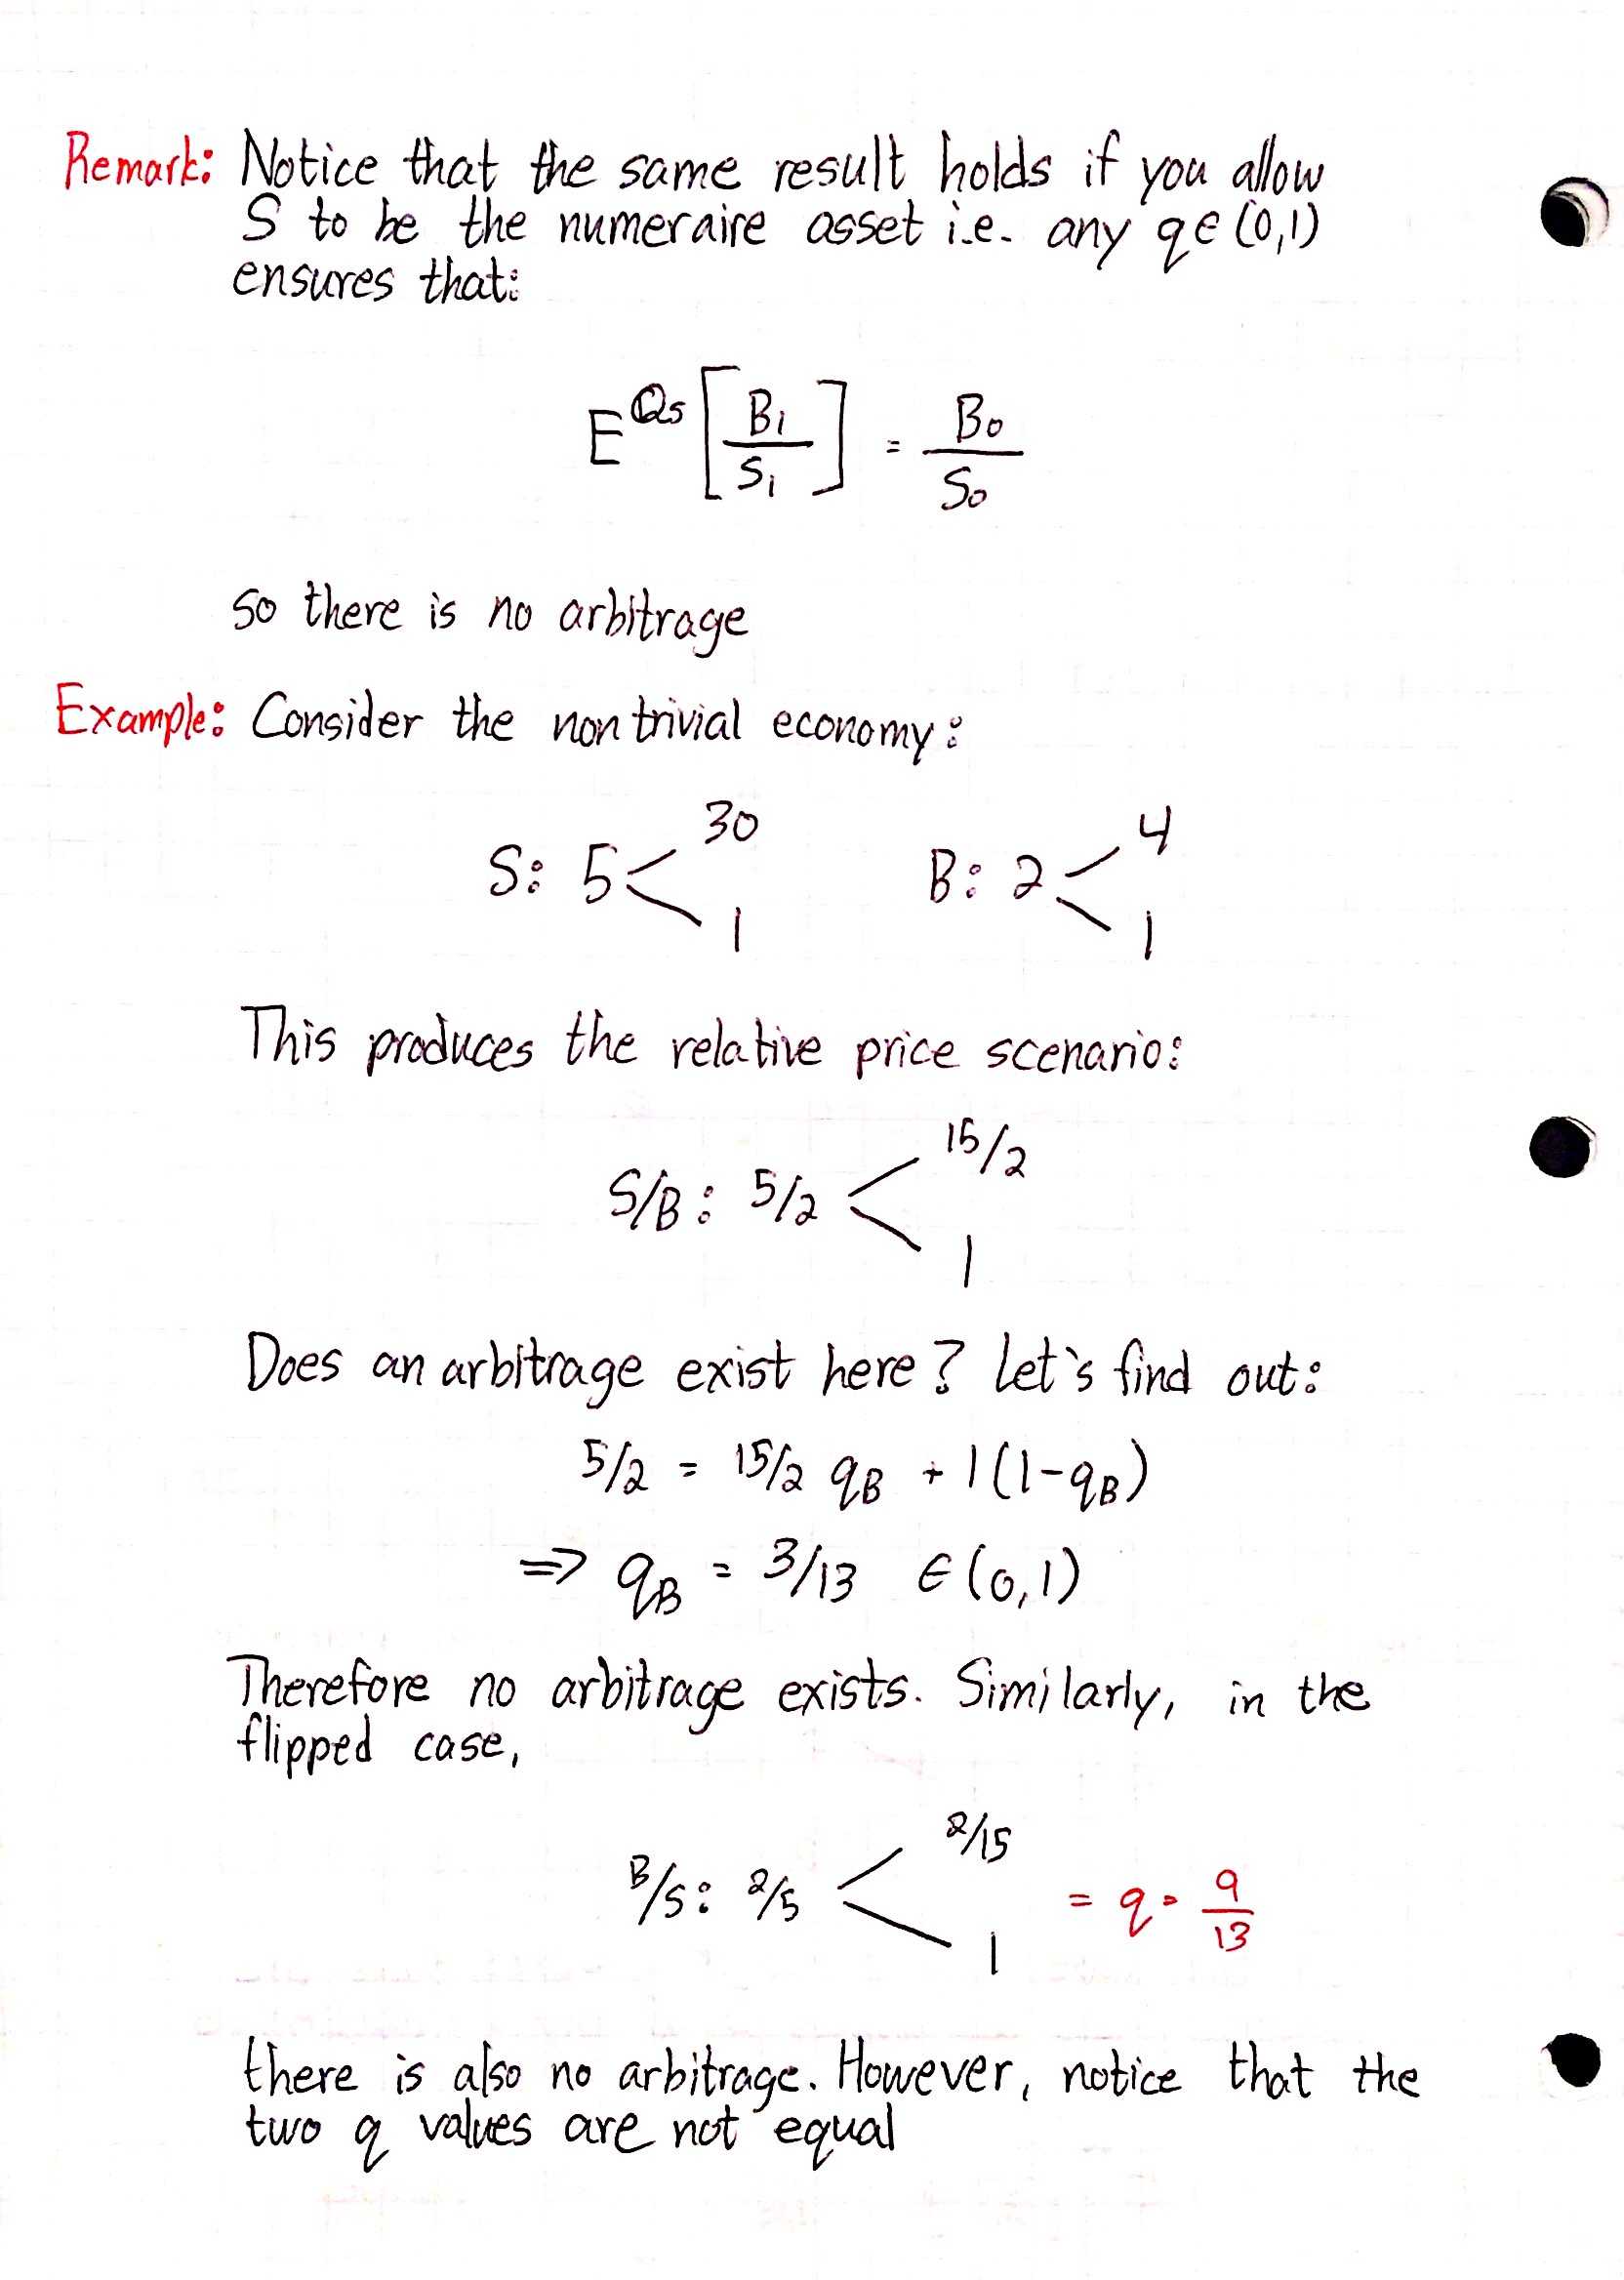 Remark: Notice that the same result holds if you allow
S to be the numeraire asset i.e. any q ∈ (0,1)
ensures that:
E^{Qs} [ B₁/S₁ ] = B₀/S₀
so there is no arbitrage
Example: Consider the non trivial economy:
30 4
S: 5 < B: 2 <
1 1
This produces the relative price scenario:
15/2
S/B: 5/2 <
1
Does an arbitrage exist here? Let's find out:
5/2 = 15/2 q_B + 1(1-q_B)
=> q_B = 3/13 ∈ (0,1)
Therefore no arbitrage exists. Similarly, in the
flipped case,
2/15
B/S: 2/5 < = q = 9/13
1
there is also no arbitrage. However, notice that the
two q values are not equal